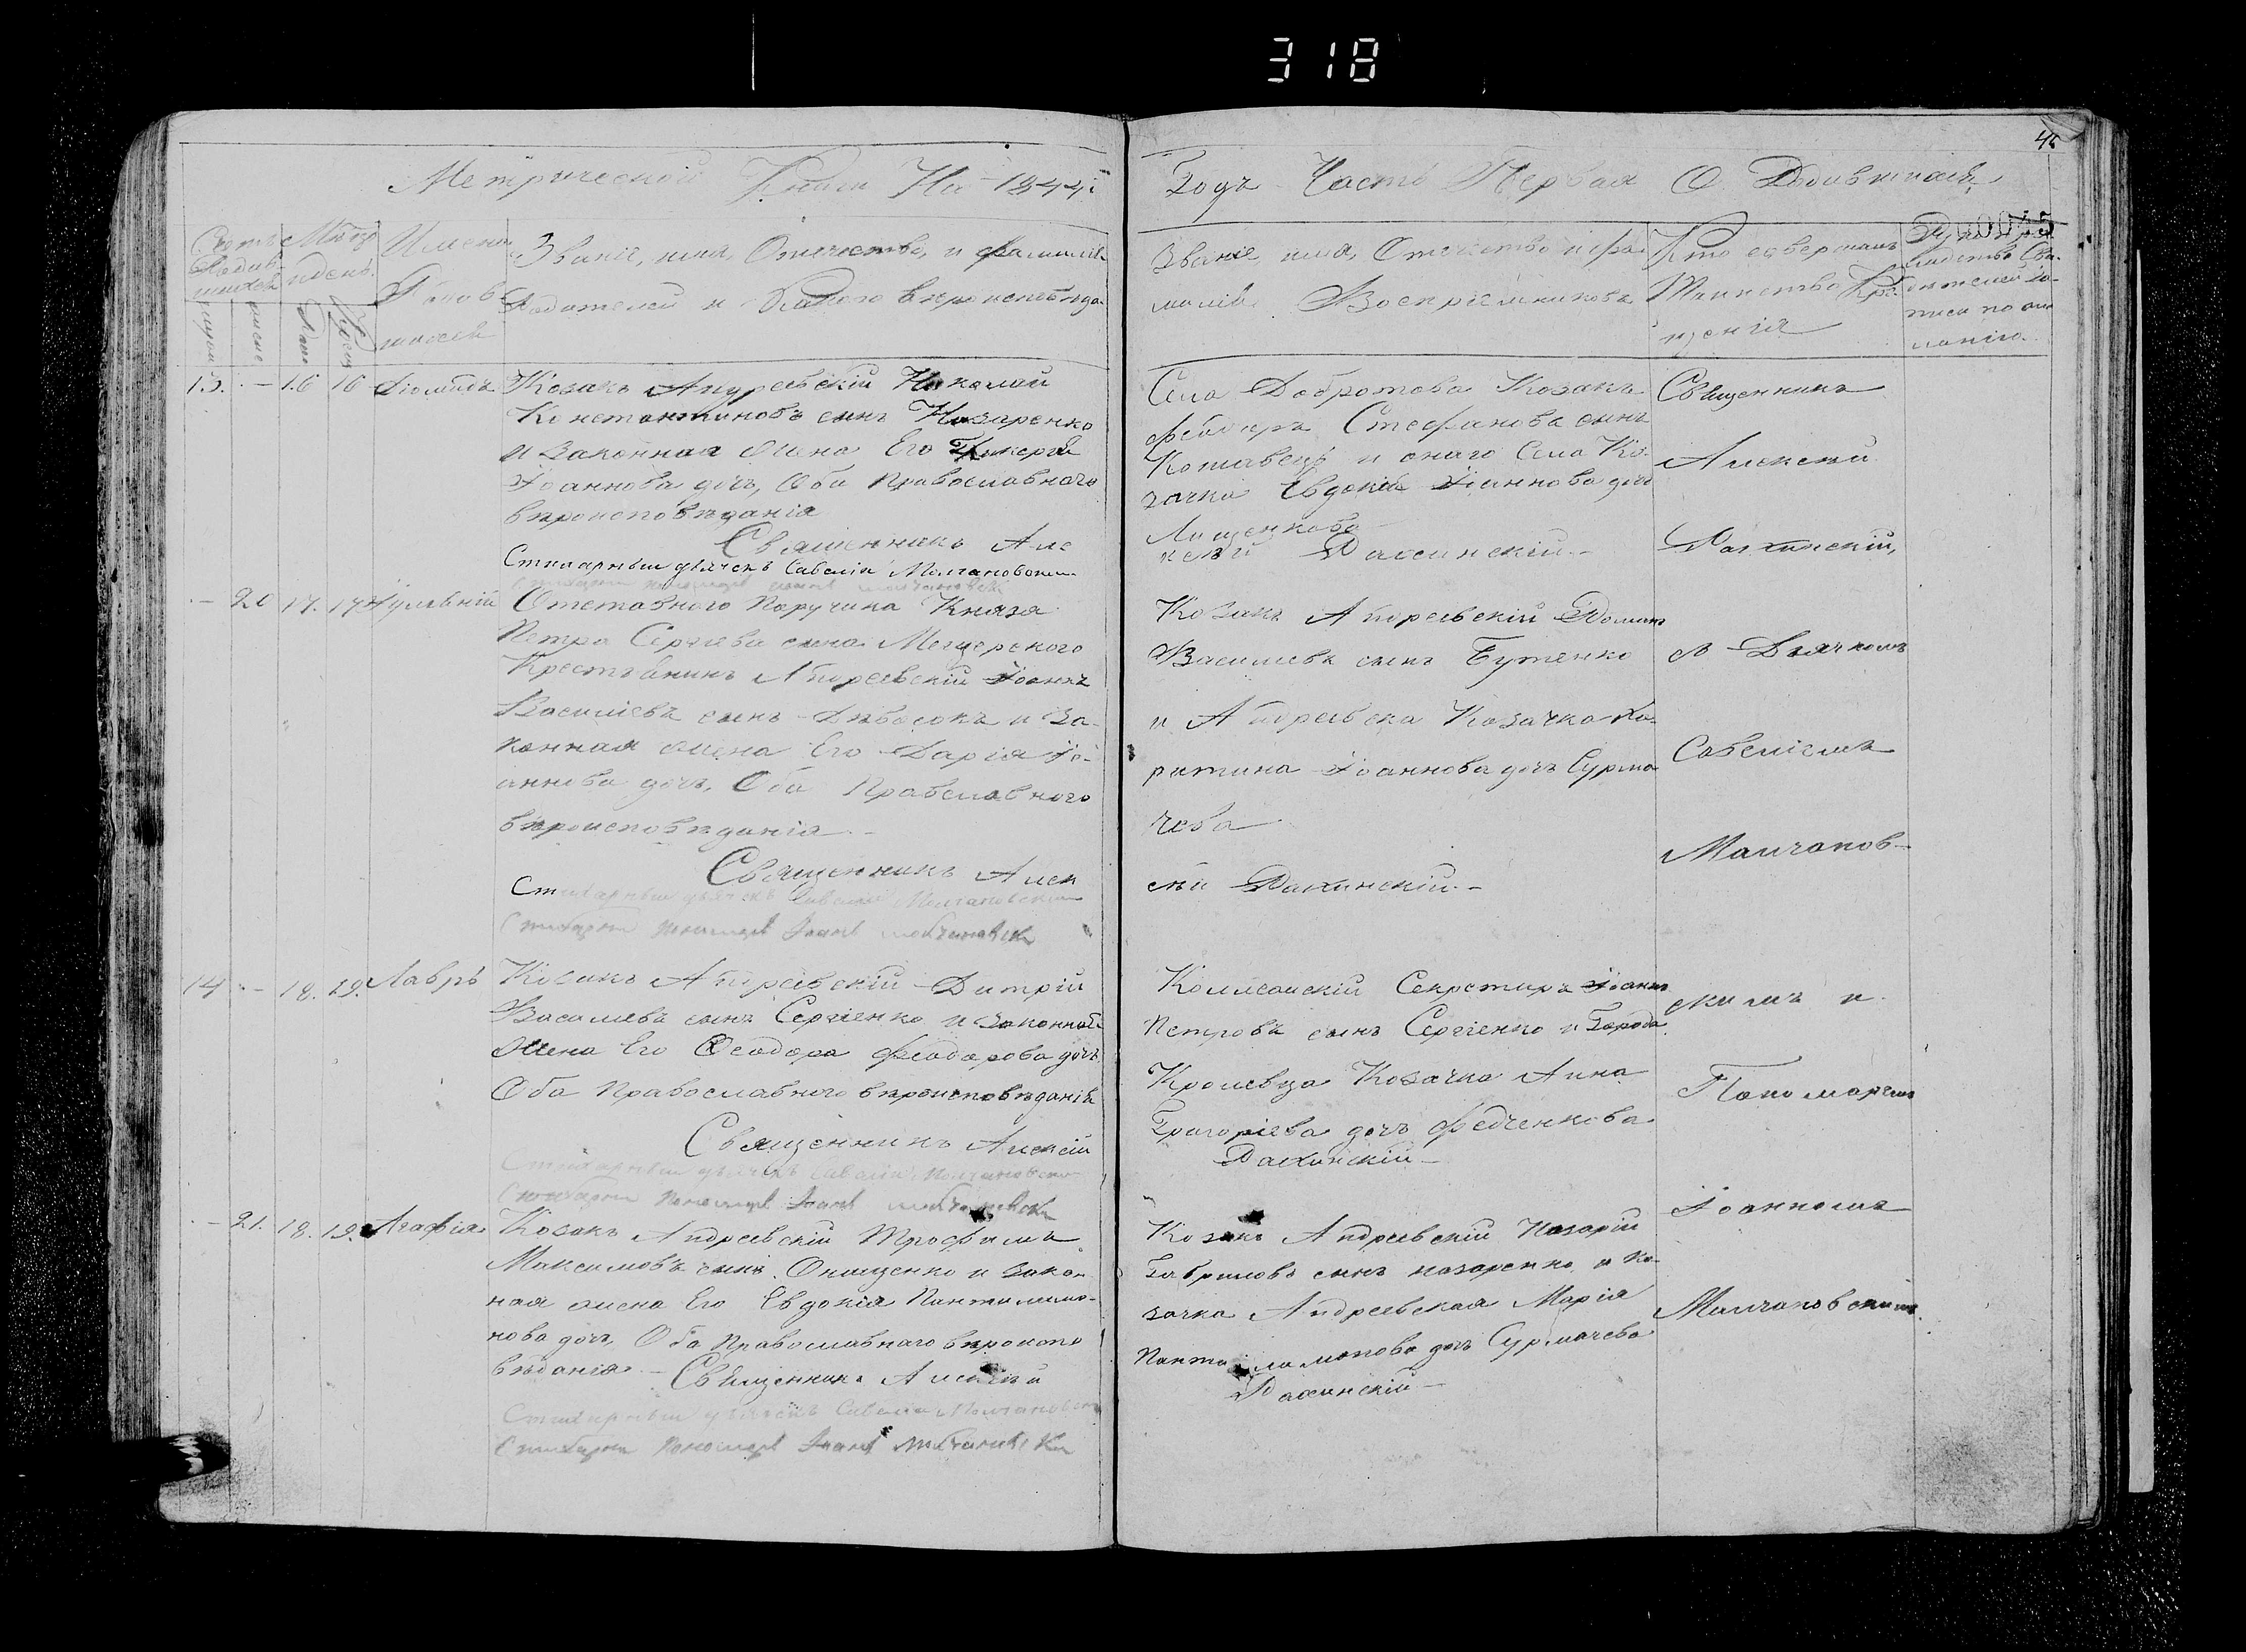 318
45
Метрической Книги На 1844й
Годъ Часть Первая О Родившихся
00045
Имена
Званіе, имя, Отчество, и фамилія
Родителей и какого вѣроисповѣда-
Званіе, имя, Отчество и фа-
милія Воспріемниковъ
Кто совершалъ
Таинство Кре-
щенія
13. - 16 16
Козакъ Андреевскій Николай
Константиновъ сынъ Назаренко
и законная жена Его Гликерія
Іоаннова дочь, Оба Православнаго
вѣроисповѣданія
Священникъ Але
Стихарный дьячекъ Савелій Молчановскій
Села Добротова Козакъ
Феодоръ Стефановъ сынъ
и онаго Села Ко-
зачка Евдокія Іоаннова дочь
Лищенкова
ксѣй Рахинскій. -
Священникъ
Алексѣй
Рахинскій,
- 20 17. 17
Отставного Поручика Князя
Петра Сергѣева сына Мещерского
Крестьянинъ Андреевскій Іоаннъ
Василіевъ сынъ и За-
конная жена Его Дарія Іо-
аннова дочь, Оба Православного
вѣроисповѣданія -
Священникъ Алек
Стихарный дьячекъ Савелій Молчановскій
Стихарный пономарь Іоаннъ Молчановскій
Козакъ Андреевскій
Василіевъ сынъ Бутенко
и Андреевска Козачка Ха-
ритина Іоаннова дочь Сурма-
чева
сѣй Рахинскій. -
съ Дьячкомъ
Савеліемъ
Малчанов-
14 - 18. 19. Лавръ
Козакъ Андреевскій Дитрій
Василіевъ сынъ Сергіенко и законная
Жена Его Феодора Феодорова дочь
Оба Православнаго вѣроисповѣданія
Священникъ Алексѣй
Стихарный дьячекъ Савелій Молчановскій
Стихарный пономарь Іоаннъ Молчановскій
Секретарь Іоаннъ
Петровъ сынъ Сергіенко и Города
Кролевца Козачка Анна
Григоріева дочь Федченкова
Рахинскій -
скимъ и
Пономаремъ
- 21. 18. 19. Агафія
Козакъ Андреевскій Трофимъ
Максимовъ сынъ Онищенко и закон-
ная жена Его Евдокія Пантилимо-
нова дочь, Оба Православнаго вѣроиспо
вѣданія - Священникъ Алексѣй
Стихарный дьячекъ Савелій Молчановскій
Стихарный пономарь Іоаннъ Молчановскій
Козакъ Андреевскій Назарій
Гавриловъ сынъ Назаренко, и Ко-
зачка Андреевская Марія
Пантилимонова дочь Сурмачева
Рахинскій -
Іоанномъ
Малчановскимъ.